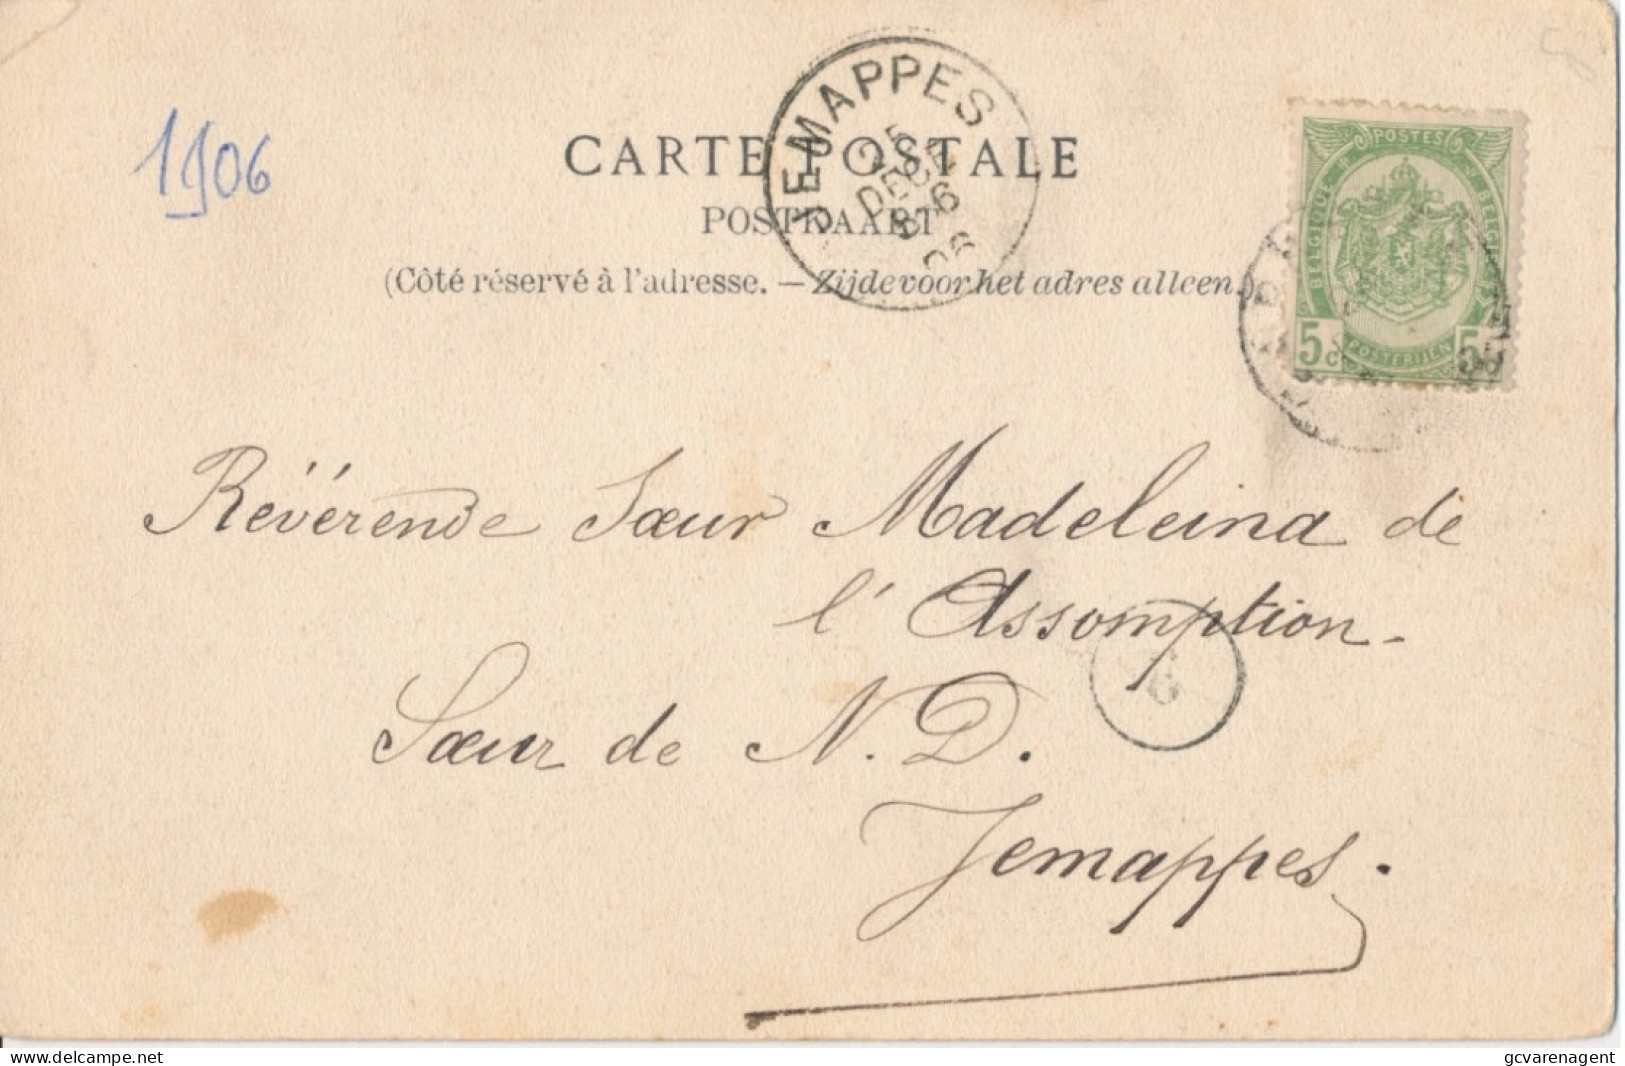 1906
CARTE POSTALE
POSTKAART
(Côté réservé à l'adresse. — Zijde voor het adres alleen.)
JEMAPPES
DEC
06
POSTES
BELGIQUE
BELGIE
5c
POSTERIJEN
5
Révérende Sœur Madeleina de
l'Assomption -
6
Sœur de N. D.
Jemappes.
www.delcampe.net
gcvarenagent